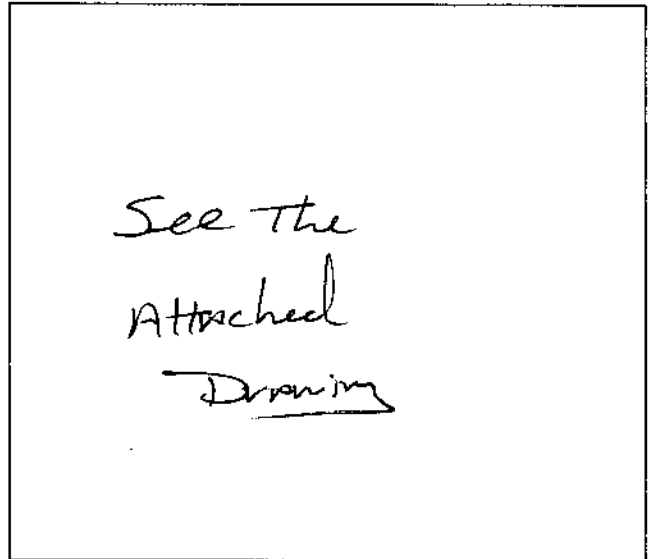 See The
Attached
Drawing